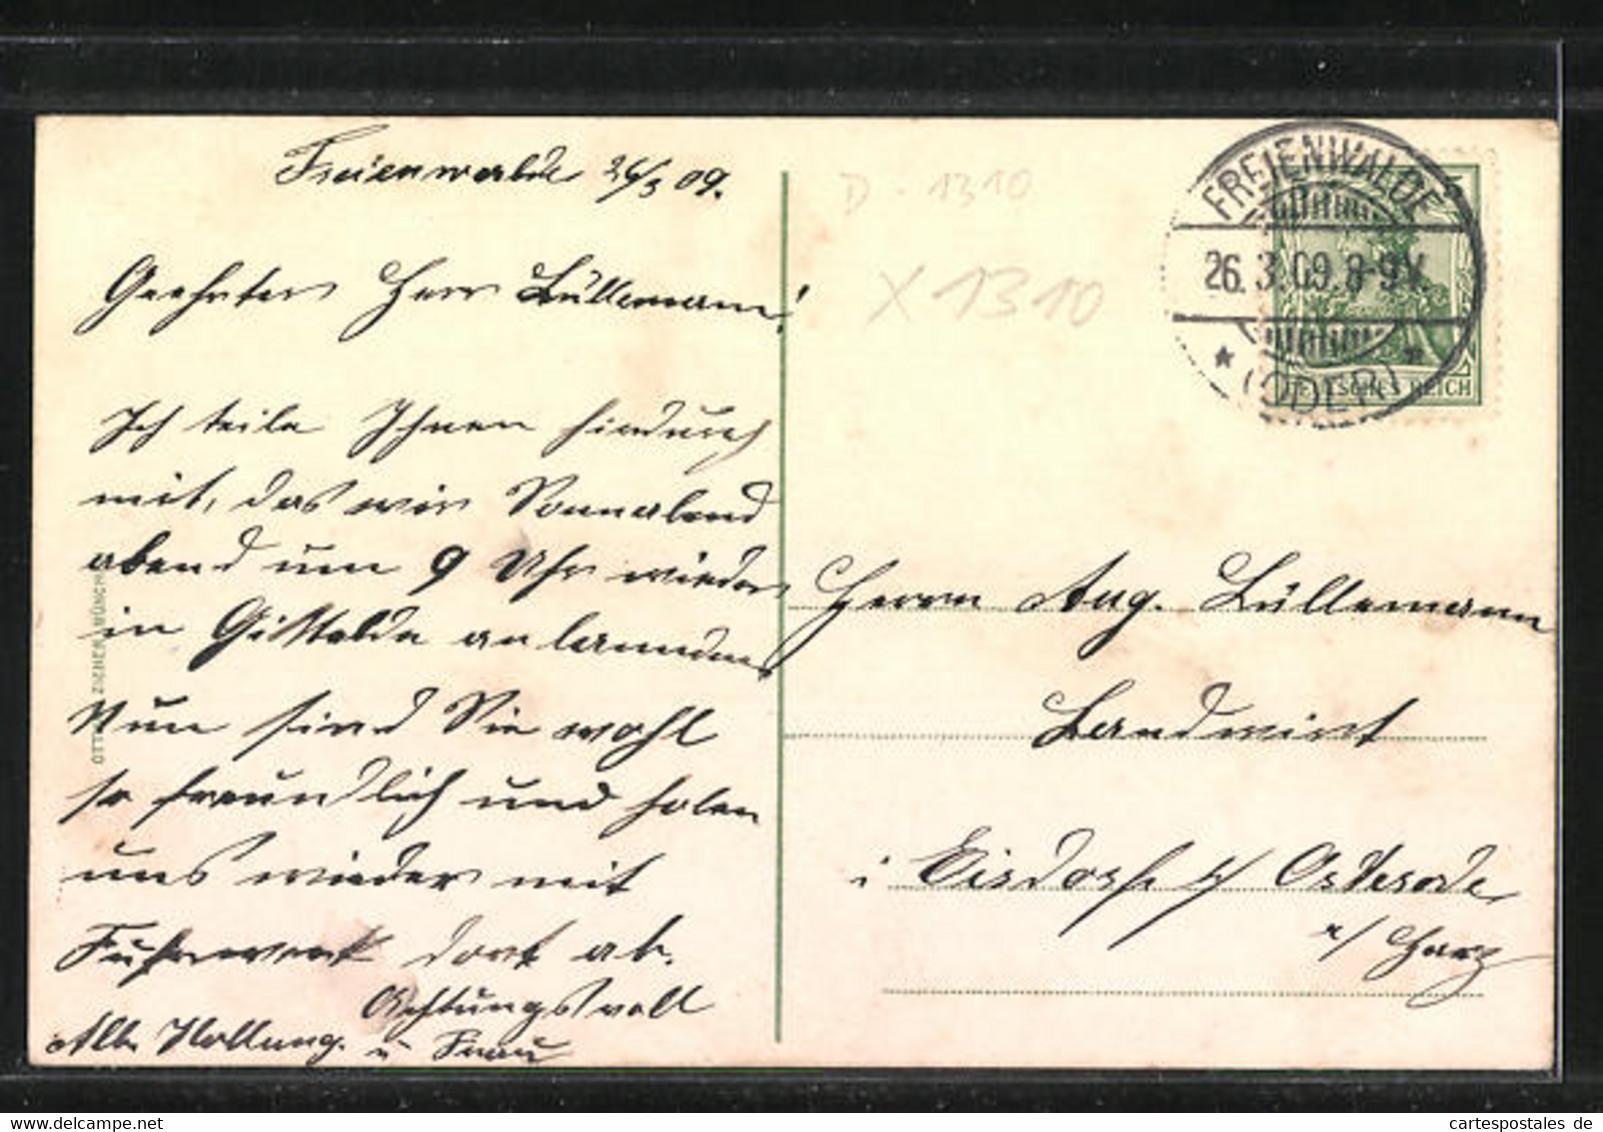 Freienwalde 26/3 09.
Geehrter Herr Lüllemann!
Ich teile Ihnen hierdurch
mit, das wir Sonnabend
abend um 9 Uhr wieder
in Gittelde anlanden
Nun sind Sie wohl
so freundlich und holen
uns wieder mit
Fuhrwerk dort ab.
Achtungsvoll
Alb. Nollung. u Frau
OTTO ZIEHER, MÜNCHEN
D - 1310
X 1310
FREIENWALDE
26.3.09.8-9V.
* (ODER) *
5
DEUTSCHES REICH
Herrn Aug. Lüllemann
Landwirt
i Eisdorf b/ Osterode
a/ Harz
www.hippostcard.com
cartespostales de